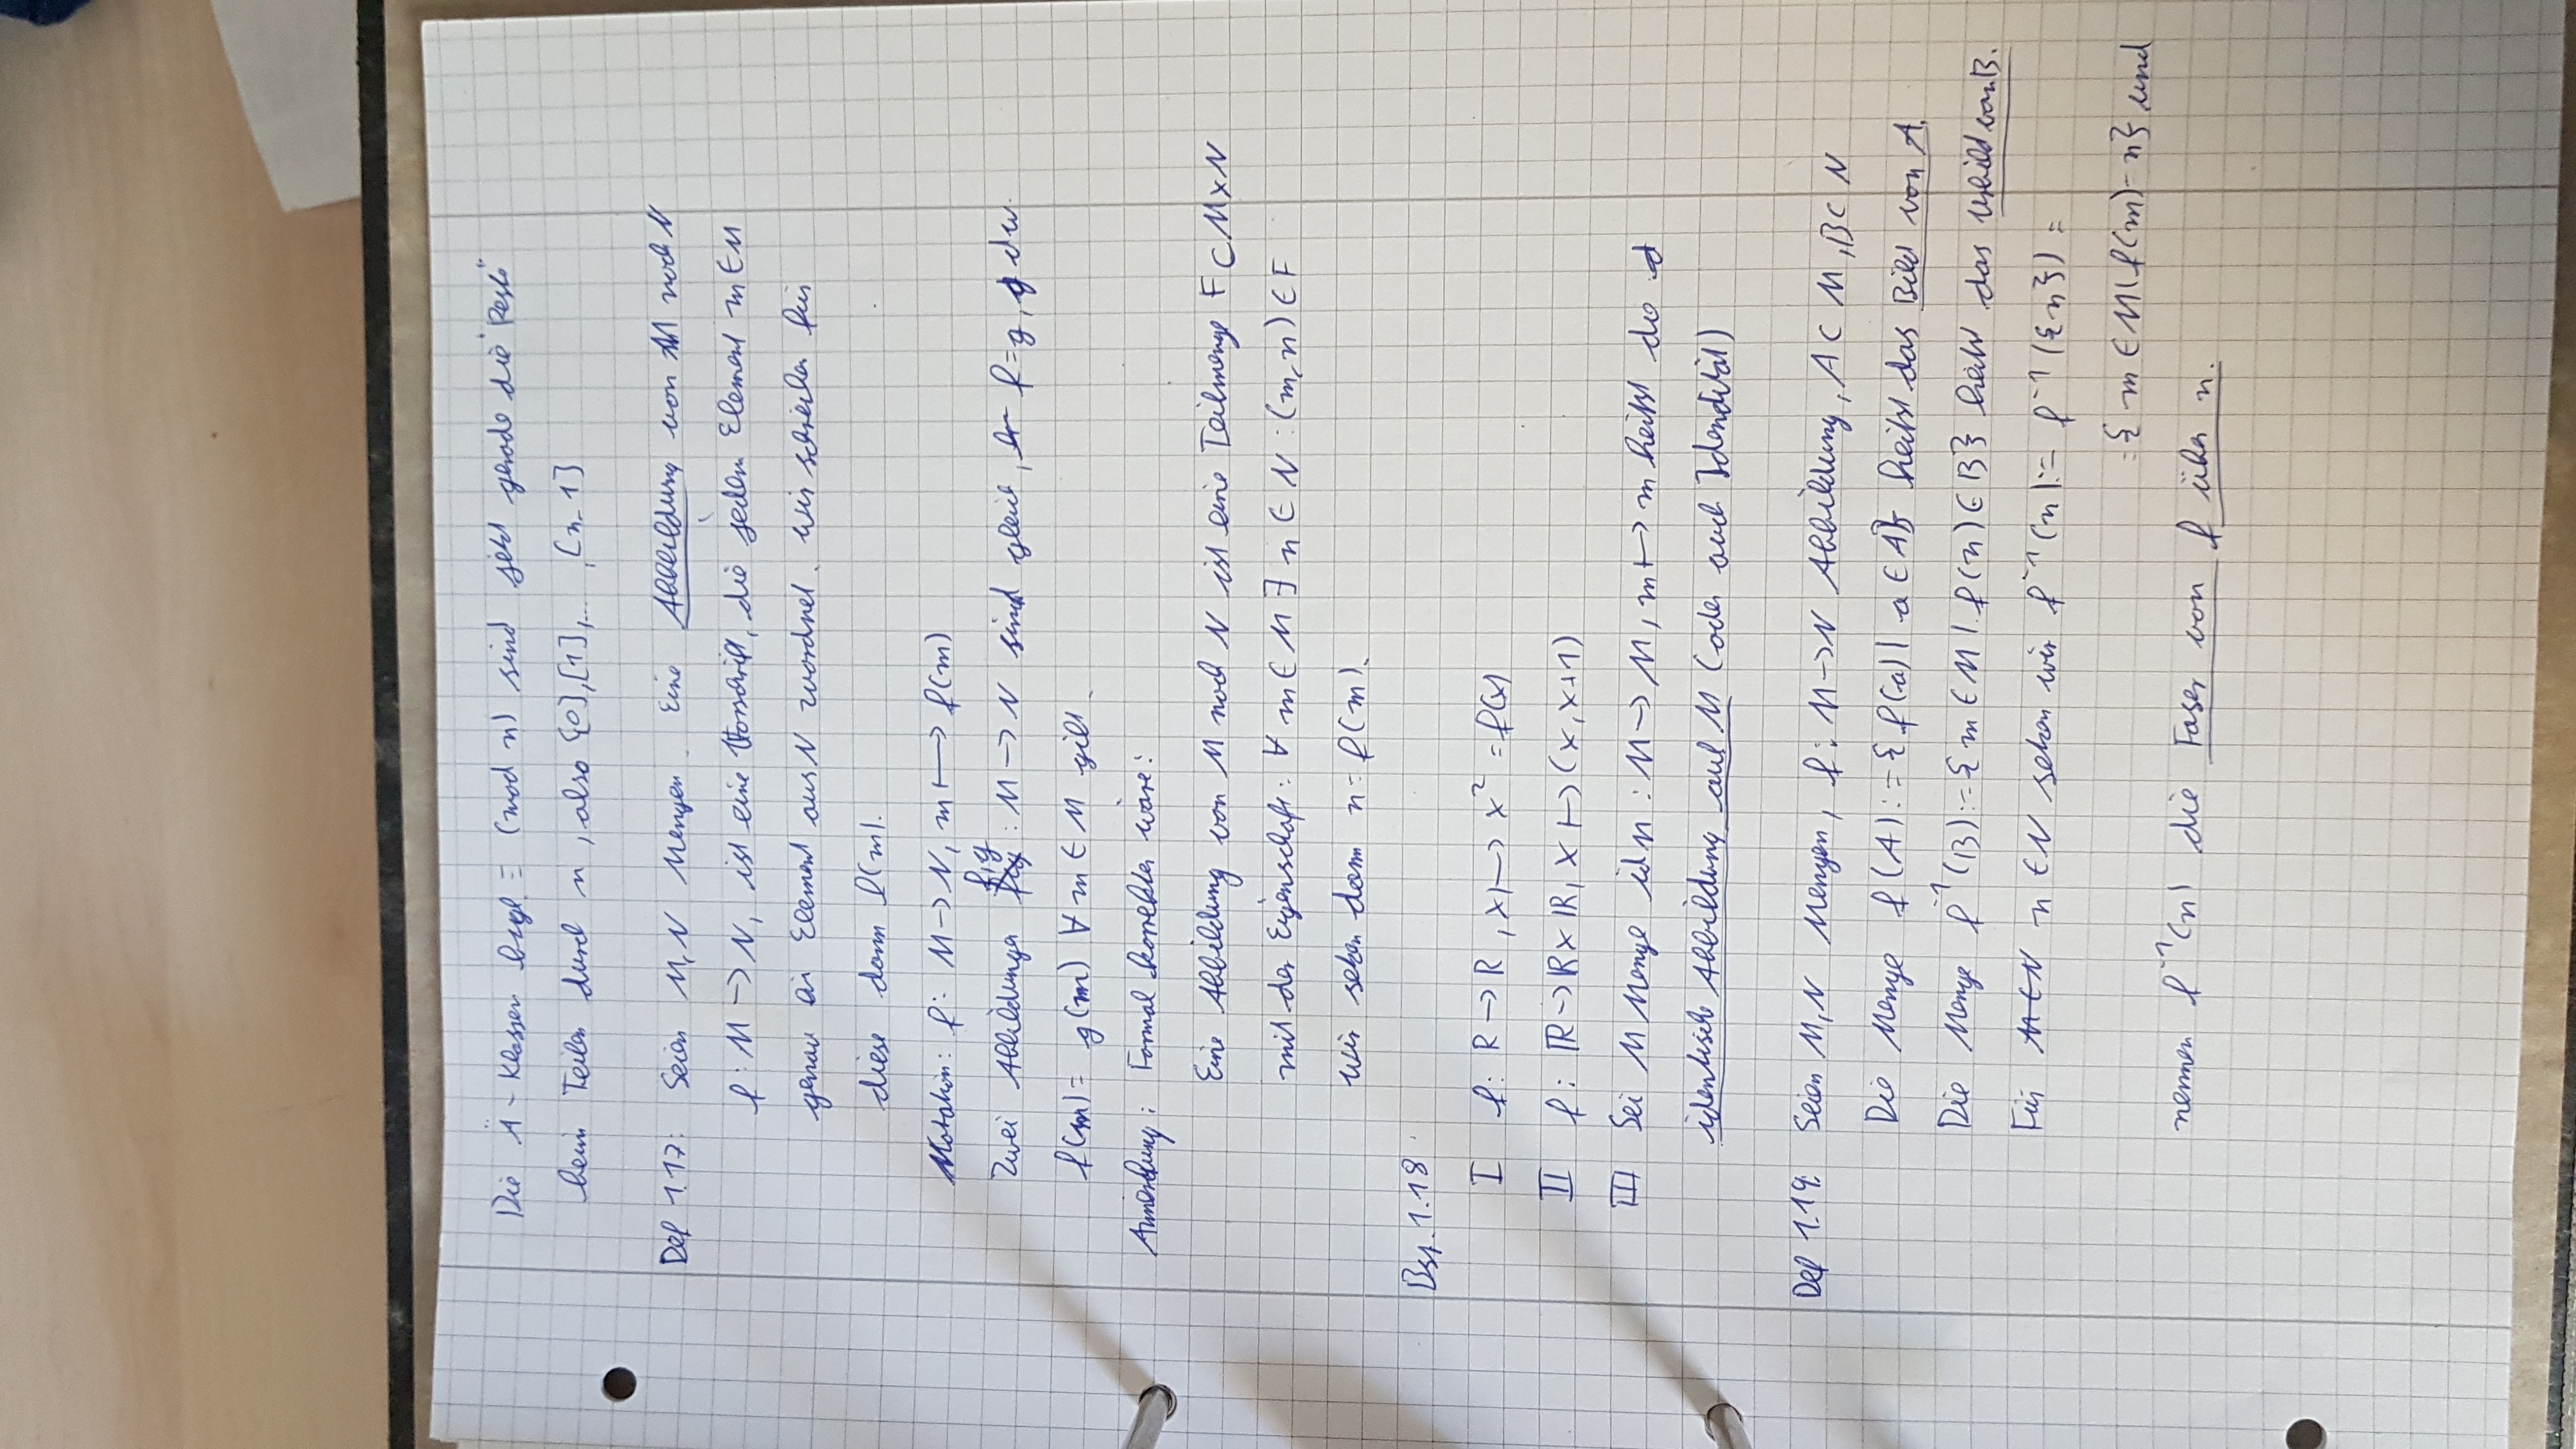 Die Ä-Klassen bzgl. ≡ (mod n) sind jetzt gerade die "Reste"
beim Teilen durch n, also [0],[1],...,[n-1]
Def 1.17: Seien M,N Mengen. Eine Abbildung von M nach N
f: M → N, ist eine Vorschrift, die jedem Element m ∈ M
genau ein Element aus N zuordnet. Wir schreiben für
diese dann f(m).
Notation: f: M → N, m ⟼ f(m)
Zwei Abbildungen f,g : M → N sind gleich, f=g, gdw.
f(m) = g(m) ∀ m ∈ M gilt.
Anmerkung: Formal korrekter wäre:
Eine Abbildung von M nach N ist eine Teilmenge F ⊂ M×N
mit der Eigenschaft: ∀ m ∈ M ∃ n ∈ N : (m,n) ∈ F
Wir setzen dann n = f(m).
Bsp. 1.18
I f: R → R, x ⟼ x² = f(x)
II f: ℝ → ℝ × ℝ, x ⟼ (x,x+1)
III Sei M Menge id_M : M → M, m ⟼ m heißt die
identische Abbildung auf M (oder auch Idendität)
Def 1.19: Seien M,N Mengen, f: M → N Abbildung, A ⊂ M, B ⊂ N
Die Menge f(A) := {f(a) | a ∈ A} heißt das Bild von A.
Die Menge f⁻¹(B) := {m ∈ M | f(n) ∈ B} heißt das Urbild von B.
Für n ∈ N setzen wir f⁻¹(n) := f⁻¹({n}) =
= {m ∈ M | f(m) = n} und
nennen f⁻¹(n) die Faser von f über n.